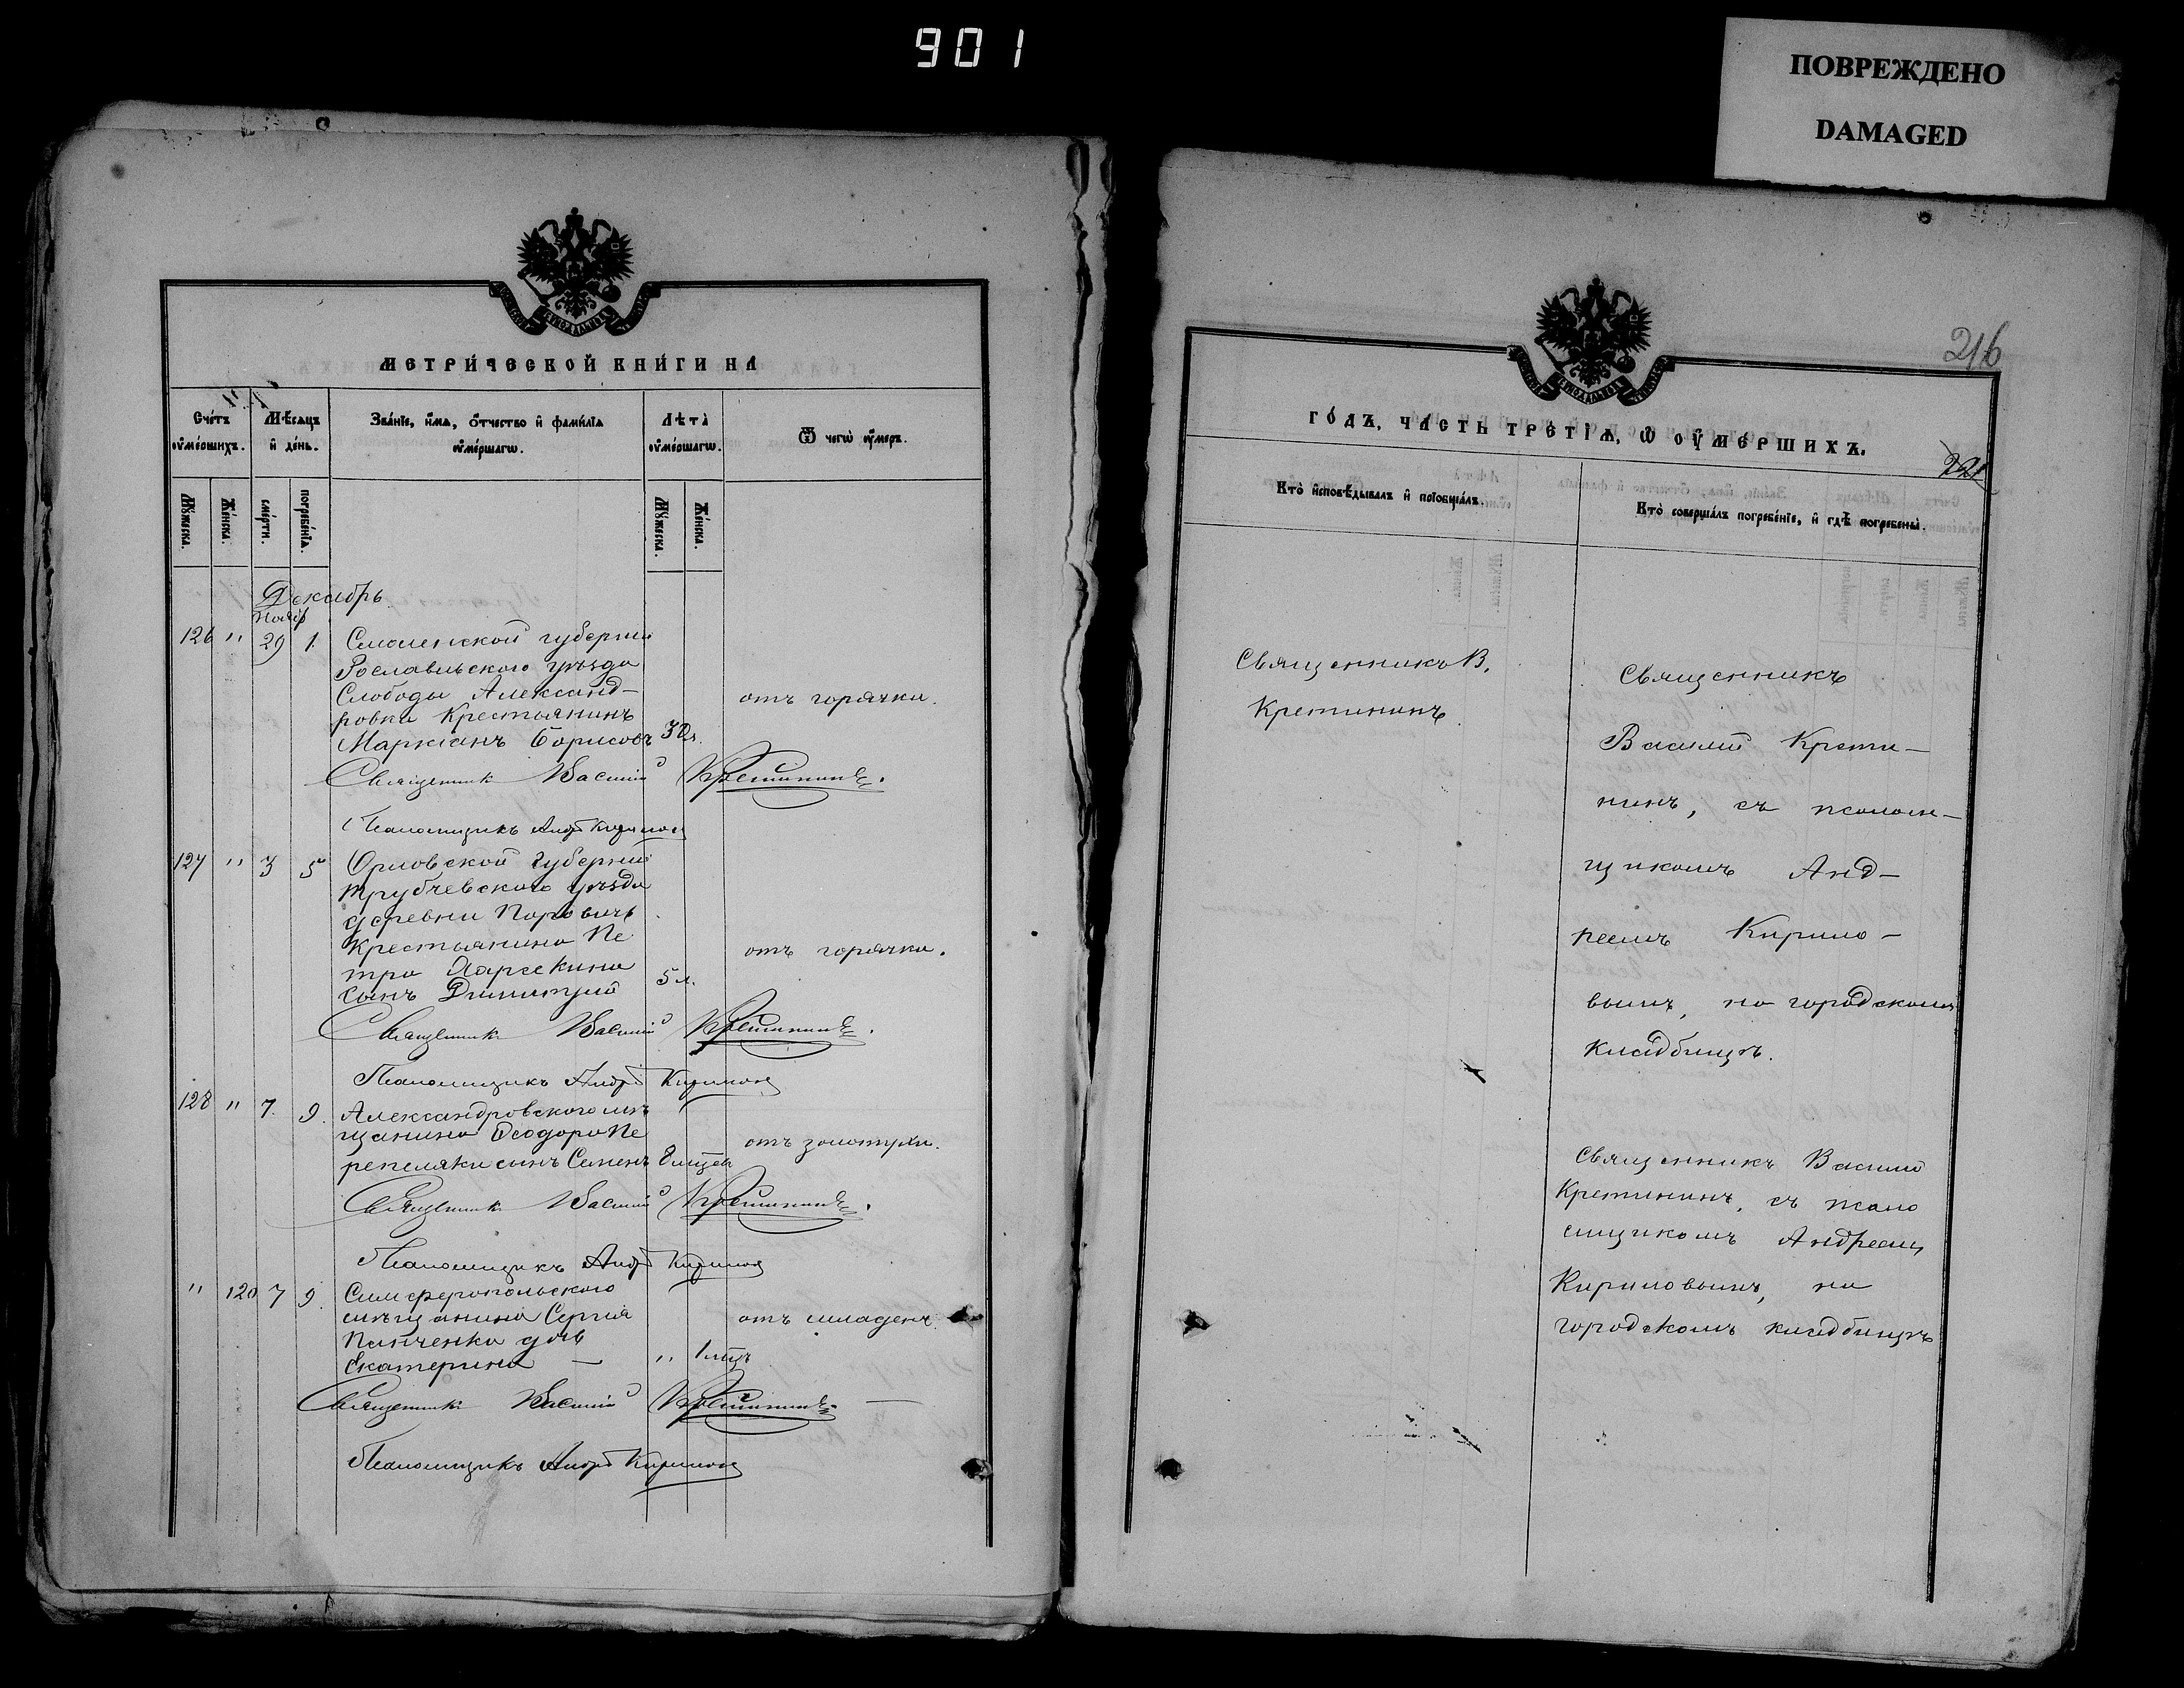 901
ПОВРЕЖДЕНО
DAMAGED
МЕТРИ́ЧЕСКОЙ КНИ́ГИ НА
Сче́тъ оу҆ме́ршихъ.
Мѣ́сяцъ и҆ де́нь.
Зва́нїе, и҆́мѧ, ѻ҆́тчество и҆ фами́лїѧ оу҆ме́ршагѡ.
Лѣ́та оу҆ме́ршагѡ.
Ѿ чегѡ̀ оу҆́меръ.
Мꙋ́жеска.
Же́нска.
сме́рти.
погребе́нїѧ.
Мꙋ́жеска.
Же́нска.
Декабрь
Нояб
126 " 29 1. Смоленской губерніи
Рославльскаго уѣзда
Слободы Александ-
ровки Крестьянинъ
Маркіанъ Борисовъ 30 л. отъ горячки.
Священникъ Василій Кретининъ.
Псаломщикъ Андр Кирилов
127 " 3 5 Орловской губерніи
Трубчевскаго уѣзда
деревни
Крестьянина Пе
тра сынъ Димитрій 5 л. отъ горячки.
Священникъ Василій Кретининъ.
Псаломщикъ Андр Кирилов
128 " 7. 9. Александровскаго мѣ
щанина Ѳеодора Пе
репеляки сынъ Семенъ 8 мѣсяц отъ золотухи.
Священникъ Василій Кретининъ.
Псаломщикъ Андр Кирилов
" 120 7 9. Симферопольскаго
мѣщанина Сергія
Панченка дочь
Екатерина — " 1 мѣц отъ младенч.
Священникъ Василій Кретининъ. —
Псаломщикъ Андр Кирилов
216
ГО́ДЪ, ЧА́СТЬ ТРЕ́ТЇѦ, Ѡ҆ ОУ҆МЕ́РШИХЪ.
221
Кто̀ и҆сповѣ́дывалъ и҆ прїобща́лъ.
Кто̀ соверша́лъ погребе́нїе, и҆ гдѣ̀ погребены̀.
Священникъ В.
Кретининъ.
Священникъ
Василій Крети-
нинъ, съ псалом-
щикомъ Анд-
реемъ Кирило-
вымъ, на городскомъ
кладбищѣ.
Священникъ Василій
Кретининъ, съ псало
мщикомъ Андреемъ
Кириловымъ, на
городскомъ кладбищѣ